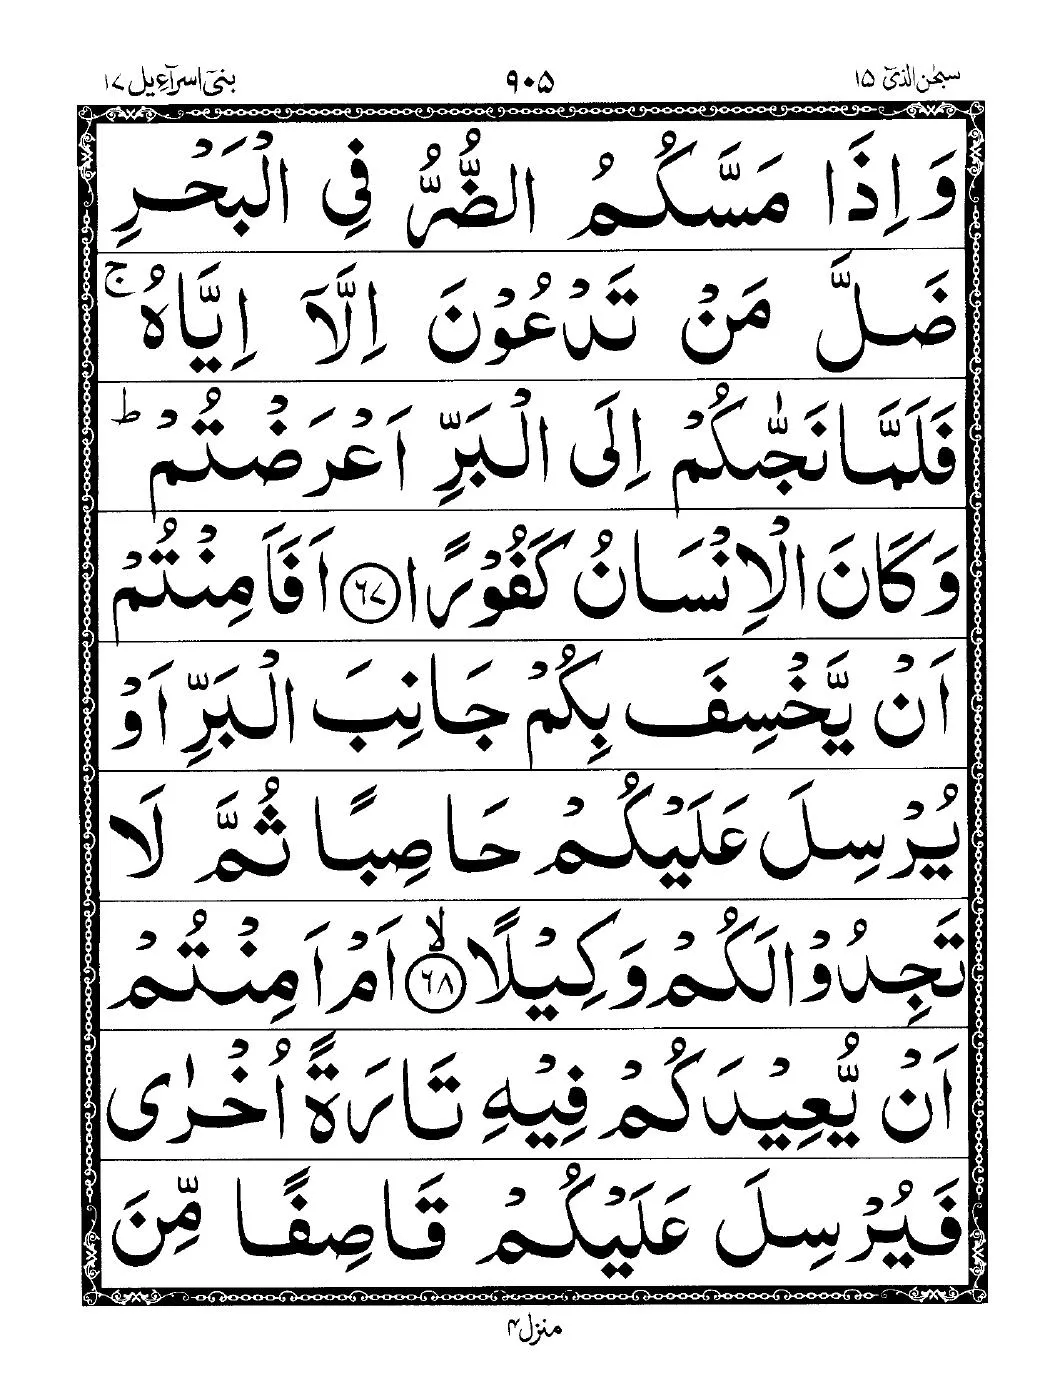 سبحٰن الذیٓ ۱۵
۹۰۵
بنیٓ اسرآءیل ۱۷
وَ اِذَا مَسَّكُمُ الضُّرُّ فِی الْبَحْرِ
ضَلَّ مَنْ تَدْعُوْنَ اِلَّاۤ اِیَّاهُ ۚ
فَلَمَّا نَجّٰىكُمْ اِلَى الْبَرِّ اَعْرَضْتُمْ ؕ
وَ كَانَ الْاِنْسَانُ كَفُوْرًا ﴿۶۷﴾ اَفَاَمِنْتُمْ
اَنْ یَّخْسِفَ بِكُمْ جَانِبَ الْبَرِّ اَوْ
یُرْسِلَ عَلَیْكُمْ حَاصِبًا ثُمَّ لَا
تَجِدُوْا لَكُمْ وَكِیْلًا ﴿۶۸﴾ۙ اَمْ اَمِنْتُمْ
اَنْ یُّعِیْدَكُمْ فِیْهِ تَارَةً اُخْرٰى
فَیُرْسِلَ عَلَیْكُمْ قَاصِفًا مِّنَ
منزل ۴